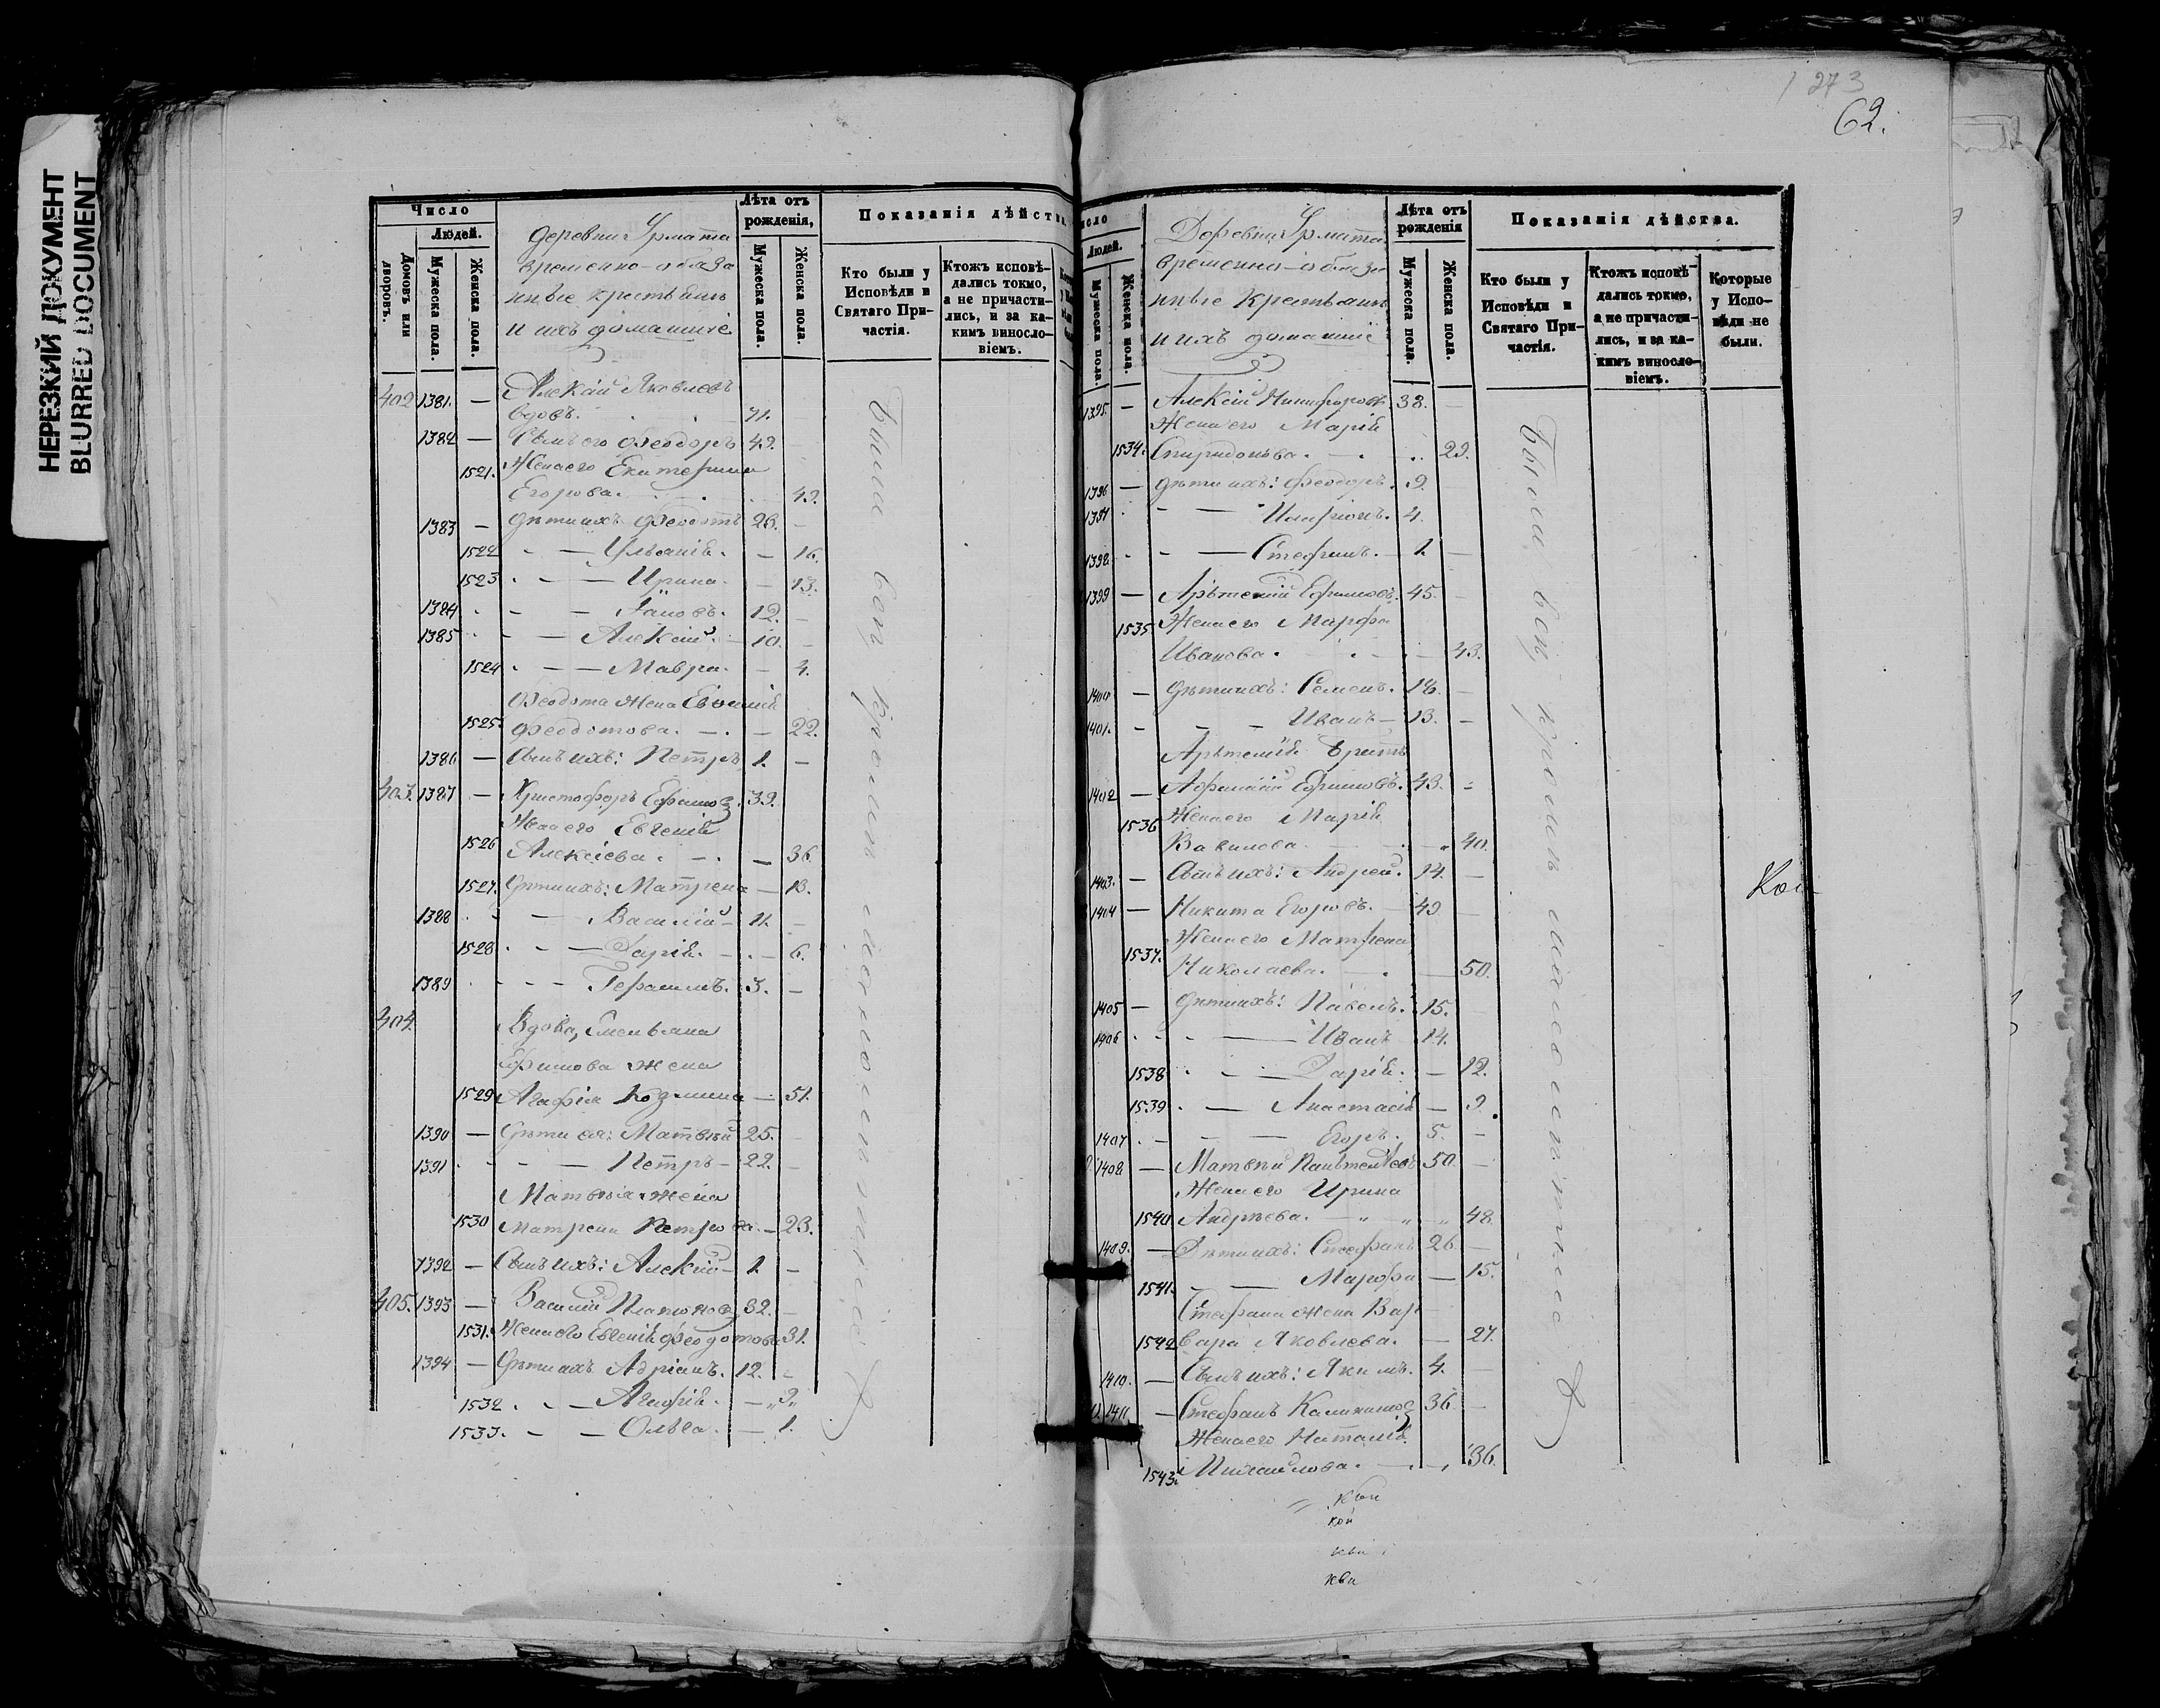 НЕРЕЗКИЙ ДОКУМЕНТ
BLURRED DOCUMENT
1 273
62.
Число
Людей.
Домовъ или дворовъ.
Мужеска пола.
Женска пола.
деревни Урмата
временно-обяза
нные крестьяне
и ихъ домашніе
Лѣта отъ рожденія,
Мужеска пола.
Женска пола.
Показанія дѣйства
Кто были у Исповѣди и Святаго При-
частія.
Ктожъ исповѣ-
дались токмо,
а не причасти-
лись, и за ка-
кимъ виносло-
віемъ.
402 1381. — Алексій Яковлевъ
вдовъ. 71.
1382 — Сынъ его Феодоръ 49.
1521. Жена его Екатерина
Егорова. 49.
1383 — Дѣти ихъ Феодотъ 26.
1522 Ульянія. — 16.
1523 Ирина. — 13.
1384 Іаковъ. 12.
1385 Алексій. 10.
1524 Мавра. — 4.
Феодота жена
1525 Феодотова. — 22.
1386 — Сынъ ихъ: Петръ 1. —
403. 1387 — Христофоръ Ефимов 39.
Жена его Евгенія
1526 Алексіева. — 36.
1527. Дѣти ихъ: Матрена — 13.
1388 Василій — 11.
1528 Дарія. — 6.
1389 Герасимъ. 3. —
404. Вдова, Емельяна
Ефимова жена
1529 Агафія Козмина — 51.
1390 — Дѣти ея: Матвей 25.
1391 Петръ — 22.
Матвея жена
1530 Матрена Петрова. — 23.
1392 — Сынъ ихъ: Алексій — 1. —
405. 1393 — Василій Платонов 32.
1531. Жена его Евгенія Феодотова 31.
1394 — Дѣти ихъ Адріанъ. 12.
1532 Агафія. — 3
1533. Ольга. — 1.
Были вси кромѣ малолѣтніе
Людей.
Мужеска пола.
Женска пола.
Деревни Урмата
временно-обяза
нные крестьяне
и ихъ домашніе
Лѣта отъ рожденія
Мужеска пола.
Женска пола.
Показанія дѣйства.
Кто были у Исповѣди и Святаго При-
частія.
Ктожъ исповѣ-
дались токмо,
а не причасти-
лись, и за ка-
кимъ виносло-
віемъ.
Которые у Испо-
вѣди не были.
1395. — Алексій Никифоровъ 38.
Жена его Марія
1534. Спиридонова. 29.
1396 — Дѣти ихъ: Феодоръ. 9.
1397 4.
1398 Стефанъ. — 1.
1399 — Арѣтемій Ефимовъ. 45.
1535 Жена его Марфа
Иванова. 43.
1400 — Дѣти ихъ: Семенъ. 18.
1401. Иванъ — 13. —
Арѣтемія братъ
1402 — Афанасій Ефимовъ. 43.
1536 Жена его Марія
Вавилова. 40.
1403. — Сынъ ихъ: Андрей. 14. —
1404 — Никита Егоровъ. 49
Жена его Матрена
1537. Николаева. — 50.
1405 — Дѣти ихъ: Павелъ. 15.
1406 Иванъ 14.
1538 Дарія. — 12.
1539 Анастасія — 9.
1407 Егоръ. 5. —
1408 — Матвей 50.
Жена его Ирина
1540 Андреева. 48.
1409. — Дѣти ихъ: Стефанъ 26 —
1541. Марфа — 15.
Стефана жена Вар
1542 вара Яковлева. — 27.
1410. — Сынъ ихъ: Якимъ. 4. —
1411. — Стефанъ Калинино 36. —
Жена его Наталія.
1543. Михайлова. 36.
Были вси, кромѣ малолѣтніе